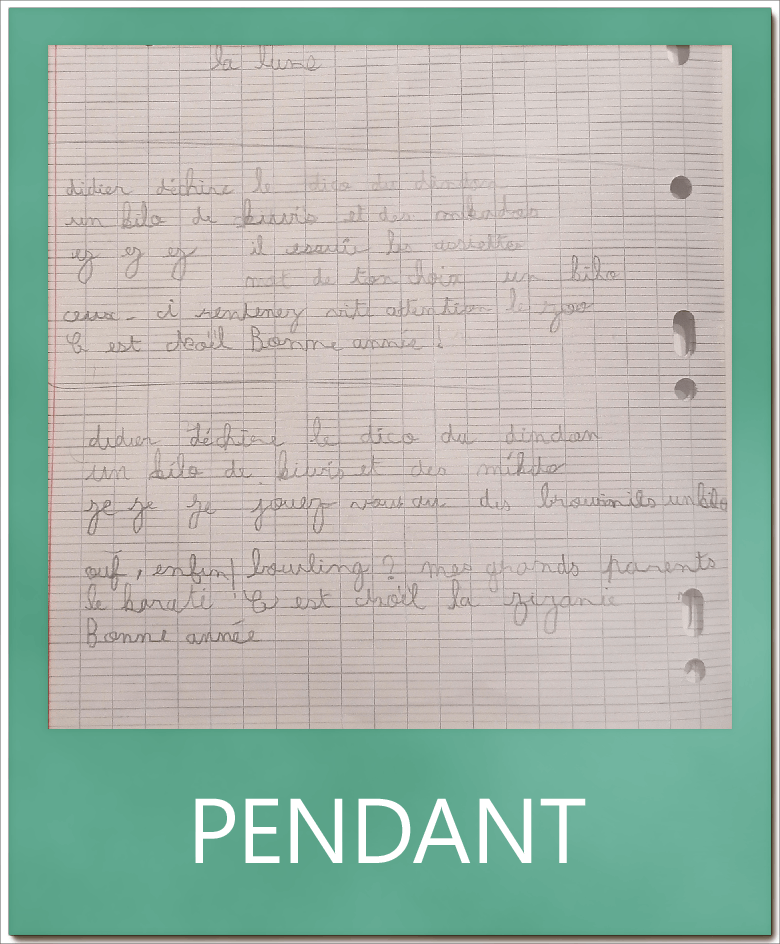 la lune
didier déchire le dico du dindon
un kilo de kiwis et des
ez ez ez il essuie les assiettes
mot de ton choix un kilo
ceux-ci rentrez vite attention le zoo
C est Noël Bonne année !
didier déchire le dico du dindon
un kilo de kiwis et des
ze ze ze jouez vous des un kilo
ouf, enfin! bowling ? mes grands parents
le karaté C est Noël la zizanie
Bonne année
PENDANT